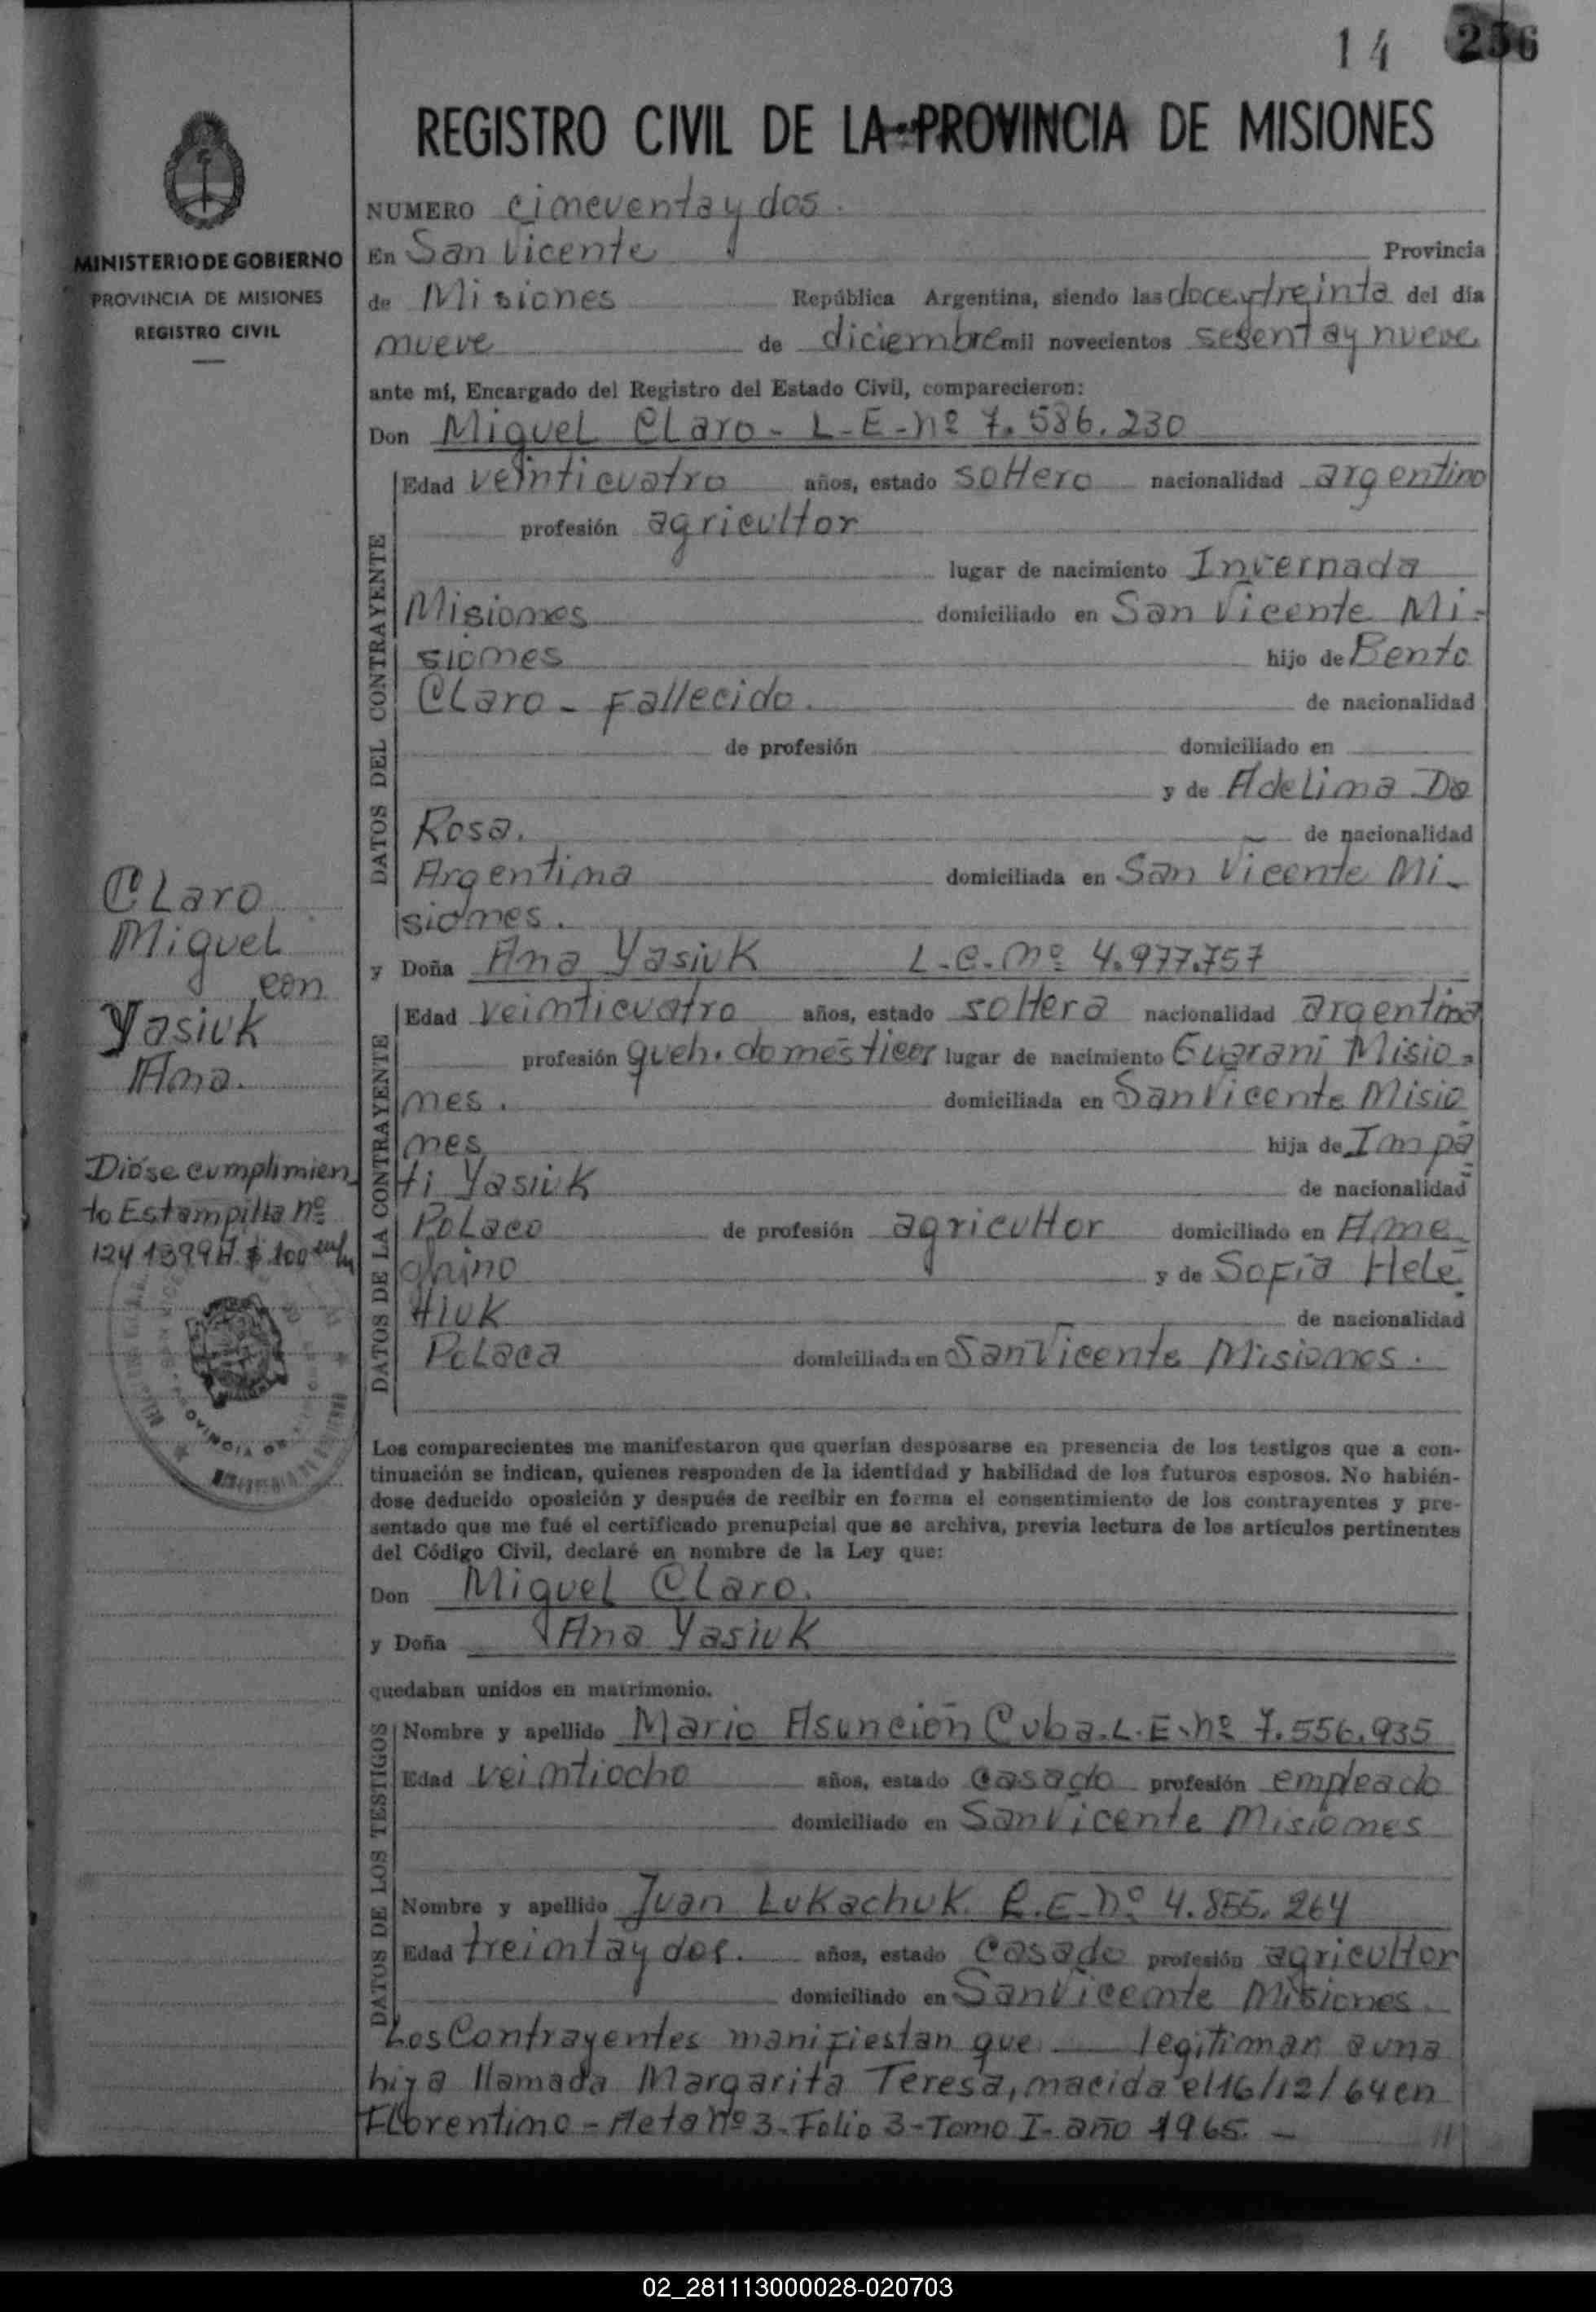 14 236
REGISTRO CIVIL DE LA PROVINCIA DE MISIONES
MINISTERIO DE GOBIERNO
PROVINCIA DE MISIONES
REGISTRO CIVIL
NUMERO cimeventa y dos.
En San Vicente Provincia
de Misiones República Argentina, siendo las doce y treinta del día
mueve de diciembre mil novecientos sesenta y nueve
ante mí, Encargado del Registro del Estado Civil, comparecieron:
Don Miguel Claro - L-E-nº 7.586.230
DATOS DEL CONTRAYENTE
Edad veinticuatro años, estado soltero nacionalidad argentino
profesión agricultor
lugar de nacimiento Invernada
Misiones domiciliado en San Vicente Mi-
siomes hijo de Bento
Claro - Fallecido. de nacionalidad
de profesión domiciliado en
y de Adelima Da
Rosa. de nacionalidad
Argentima domiciliada en San Vicente Mi-
siomes.
y Doña Ana Yasiuk L.C.mº 4.977.757
DATOS DE LA CONTRAYENTE
Edad veimticuatro años, estado soltera nacionalidad argentima
profesión queh. domésticos lugar de nacimiento Guarani Misio-
mes. domiciliada en San Vicente Misio
mes hija de Impa
ti Yasiuk de nacionalidad
Polaco de profesión agricultor domiciliado en Ame
ghino y de Sofia Hele
tiuk de nacionalidad
Polaca domiciliada en San Vicente Misiomes.
Claro
Miguel
con
Yasiuk
Ana.
Dióse cumplimien
to Estampilla nº
1241399 A $ 100
Los comparecientes me manifestaron que querían desposarse en presencia de los testigos que a con-
tinuación se indican, quienes responden de la identidad y habilidad de los futuros esposos. No habién-
dose deducido oposición y después de recibir en forma el consentimiento de los contrayentes y pre-
sentado que me fué el certificado prenupcial que se archiva, previa lectura de los artículos pertinentes
del Código Civil, declaré en nombre de la Ley que:
Don Miguel Claro.
y Doña Ana Yasiuk
quedaban unidos en matrimonio.
DATOS DE LOS TESTIGOS
Nombre y apellido Mario Asunción Cuba.L.E.nº 7.556.935
Edad veimtiocho años, estado casado profesión empleado
domiciliado en San Vicente Misiomes
Nombre y apellido Juan Lukachuk. L.E.nº 4.855.264
Edad treimta y dos. años, estado Casado profesión agricultor
domiciliado en San Vicemte Misiones.
Los Contrayentes manifiestan que legitiman a una
hija llamada Margarita Teresa, macida el 16/12/64 en
Florentimo - Acta nº 3 - Folio 3 - Tomo I - año 1965. -
02_281113000028-020703